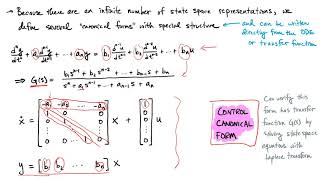 - Because there are an infinite number of state space representations, we
define several "canonical forms" with special structure
← and can be written
directly from the ODE
or transfer function
dⁿy/dtⁿ + a₁ dⁿ⁻¹y/dtⁿ⁻¹ + ... + aₙy = b₁ dⁿ⁻¹u/dtⁿ⁻¹ + ... + bₙu
⇒ G(s) = (b₁sⁿ⁻¹ + b₂sⁿ⁻² + ... + bₙ₋₁s + bₙ) / (sⁿ + a₁sⁿ⁻¹ + ... + aₙ₋₁s + aₙ)
ẋ = [-a₁ -a₂ ... -aₙ; 1 0 ... 0; 0 1 ... 0; 0 ... 1 0] x + [1; 0; 0; ⋮; 0] u
y = [b₁ b₂ ... bₙ] x
CONTROL
CANONICAL
FORM
Can verify this
form has transfer
function G(s) by
solving state space
equations with
Laplace transform